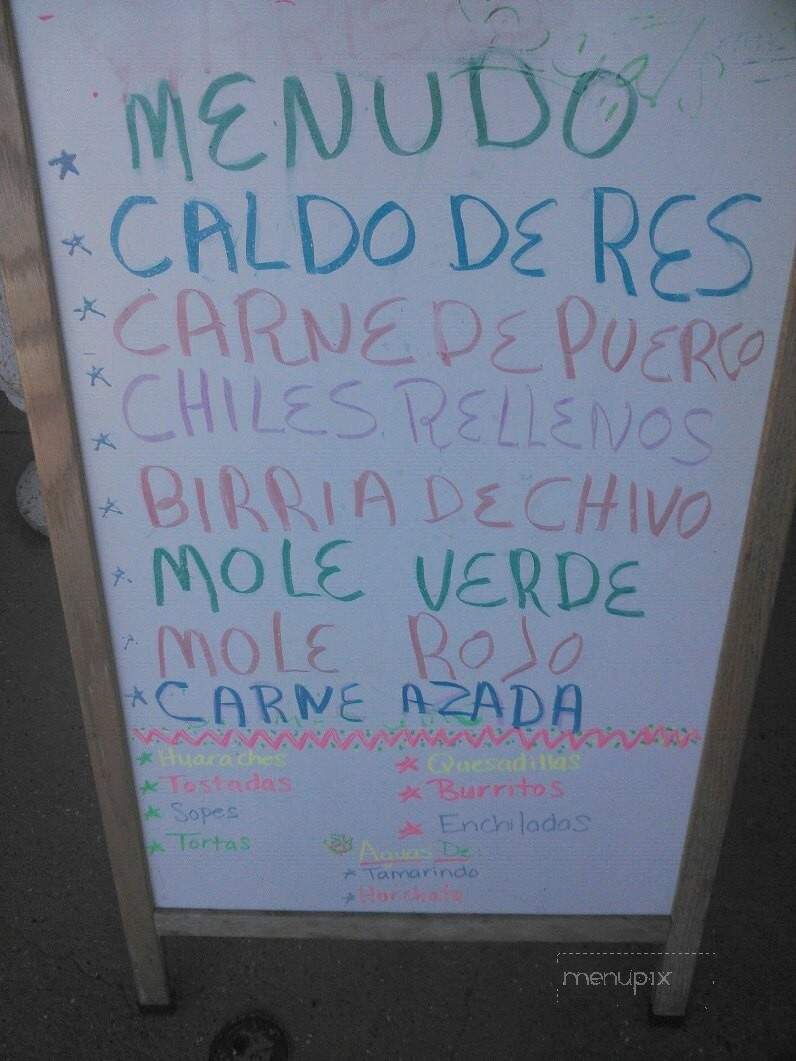 MENUDO
CALDO DE RES
CARNE DE PUERCO
CHILES RELLENOS
BIRRIA DE CHIVO
MOLE VERDE
MOLE ROJO
CARNE AZADA
Huaraches
Tostadas
Sopes
Tortas
Quesadillas
Burritos
Enchiladas
Aguas De
Tamarindo
Horchata
menupix